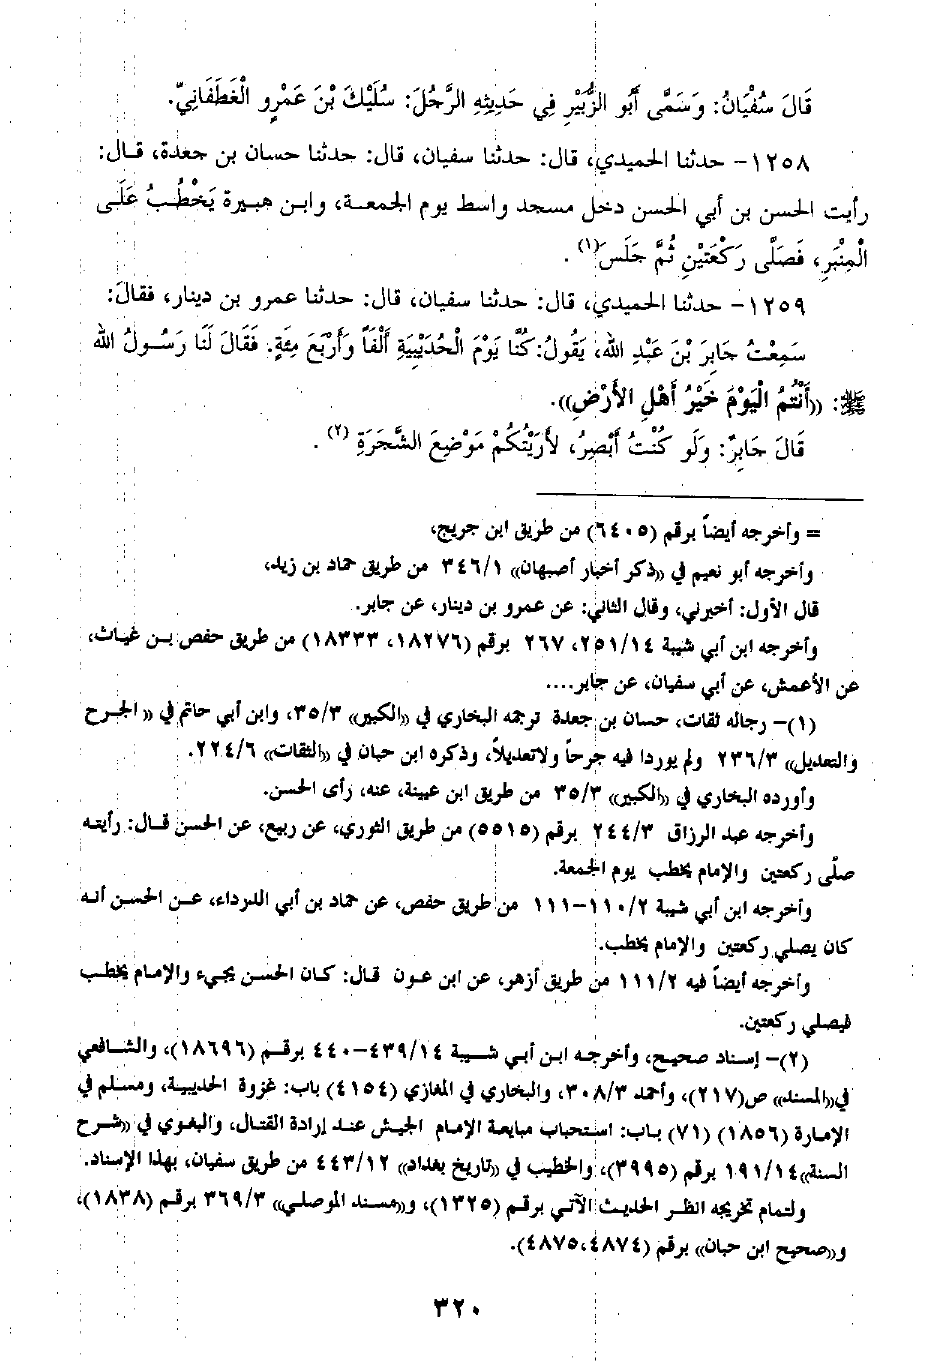 قَالَ سُفْيَانُ: وَسَمَّى أَبُو الزُّبَيْرِ فِي حَدِيثِهِ الرَّجُلَ: سُلَيْكَ بْنَ عَمْرٍو الْغَطَفَانِيّ.
١٢٥٨- حدثنا الحميدي، قال: حدثنا سفيان، قال: حدثنا حسان بن جعدة، قال:
رأيت الحسن بن أبي الحسن دخل مسجد واسط يوم الجمعة، وابن هبيرة يَخْطُبُ عَلَى
الْمِنْبَرِ، فَصَلَّى رَكْعَتَيْنِ ثُمَّ جَلَسَ(١).
١٢٥٩- حدثنا الحميدي، قال: حدثنا سفيان، قال: حدثنا عمرو بن دينار، فقالَ:
سَمِعْتُ جَابِرَ بْنَ عَبْدِ الله، يَقُولُ: كُنَّا يَوْمَ الْحُدَيْبِيَةِ أَلْفاً وَأَرْبَعَ مِئَةٍ. فَقَالَ لَنَا رَسُولُ الله
ﷺ: ((أَنْتُمُ الْيَوْمَ خَيْرُ أَهْلِ الأَرْضِ)).
قَالَ جَابِرٌ: وَلَو كُنْتُ أُبْصِرُ، لأَرَيْتُكُمْ مَوْضِعَ الشَّجَرَةِ (٢).
= وأخرجه أيضاً برقم (٦٤٠٥) من طريق ابن جريج،
وأخرجه أبو نعيم في ((ذكر أخبار أصبهان)) ٣٤٦/١ من طريق حماد بن زيد،
قال الأول: أخبرني، وقال الثاني: عن عمرو بن دينار، عن جابر.
وأخرجه ابن أبي شيبة ٢٥١/١٤، ٢٦٧ برقم (١٨٢٧٦، ١٨٣٣٣) من طريق حفص بن غياث،
عن الأعمش، عن أبي سفيان، عن جابر....
(١)- رجاله ثقات، حسان بن جعدة ترجمه البخاري في ((الكبير)) ٣٥/٣، وابن أبي حاتم في ((الجرح
والتعديل)) ٢٣٦/٣ ولم يوردا فيه جرحاً ولاتعديلاً، وذكره ابن حبان في ((الثقات)) ٢٢٤/٦.
وأورده البخاري في ((الكبير)) ٣٥/٣ من طريق ابن عيينة، عنه، رأى الحسن.
وأخرجه عبد الرزاق ٢٤٤/٣ برقم (٥٥١٥) من طريق الثوري، عن ربيع، عن الحسن قال: رأيته
صلّى ركعتين والإمام يخطب يوم الجمعة.
وأخرجه ابن أبي شيبة ١١٠/٢-١١١ من طريق حفص، عن حماد بن أبي الدرداء، عن الحسن أنه
كان يصلي ركعتين والإمام يخطب.
وأخرجه أيضاً فيه ١١١/٢ من طريق أزهر، عن ابن عون قال: كان الحسن يجيء والإمام يخطب
فيصلي ركعتين.
(٢)- إسناد صحيح، وأخرجه ابن أبي شيبة ٤٣٩/١٤-٤٤٠ برقم (١٨٦٩٦)، والشافعي
في((المسند)) ص(٢١٧)، وأحمد ٣٠٨/٣، والبخاري في المغازي (٤١٥٤) باب: غزوة الحديبية، ومسلم في
الإمارة (١٨٥٦) (٧١) باب: استحباب مبايعة الإمام الجيش عند إرادة القتال، والبغوي في ((شرح
السنة))١٩١/١٤ برقم (٣٩٩٥)، والخطيب في ((تاريخ بغداد)) ٤٤٣/١٢ من طريق سفيان، بهذا الإسناد.
ولتمام تخريجه انظر الحديث الآتي برقم (١٣٢٥)، و((مسند الموصلي)) ٣٦٩/٣ برقم (١٨٣٨)،
و((صحيح ابن حبان)) برقم (٤٨٧٤، ٤٨٧٥).
٣٢٠